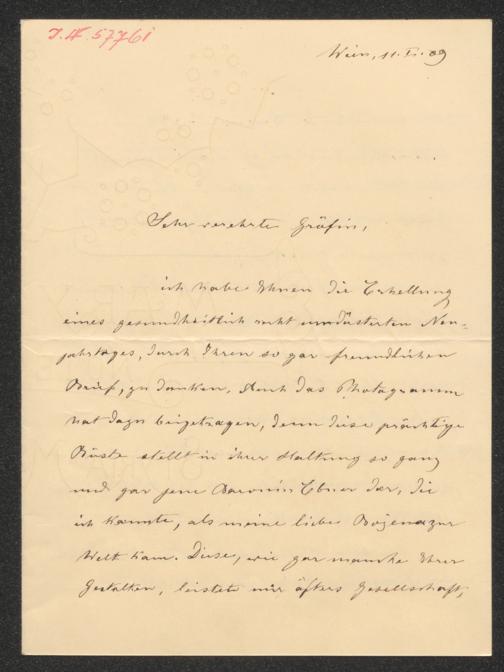 I.N. 57761
Wien, 11. I. 09
Sehr verehrte Gräfin,
ich habe Ihnen die Erhellung
eines gesundheitlich recht umdüsterten Neu-
jahrtages, durch Ihren so gar freundlichen
Brief, zu danken. Auch das Photogramm
hat dazu beigetragen, denn diese prächtige
Büste stellt in ihrer Haltung so ganz
und gar jene Baronin Ebner dar, die
ich kannte, als meine liebe Božena zur
Welt kam. Diese, wie gar manche Ihrer
Gestalten, leistete mir öfters Gesellschaft,